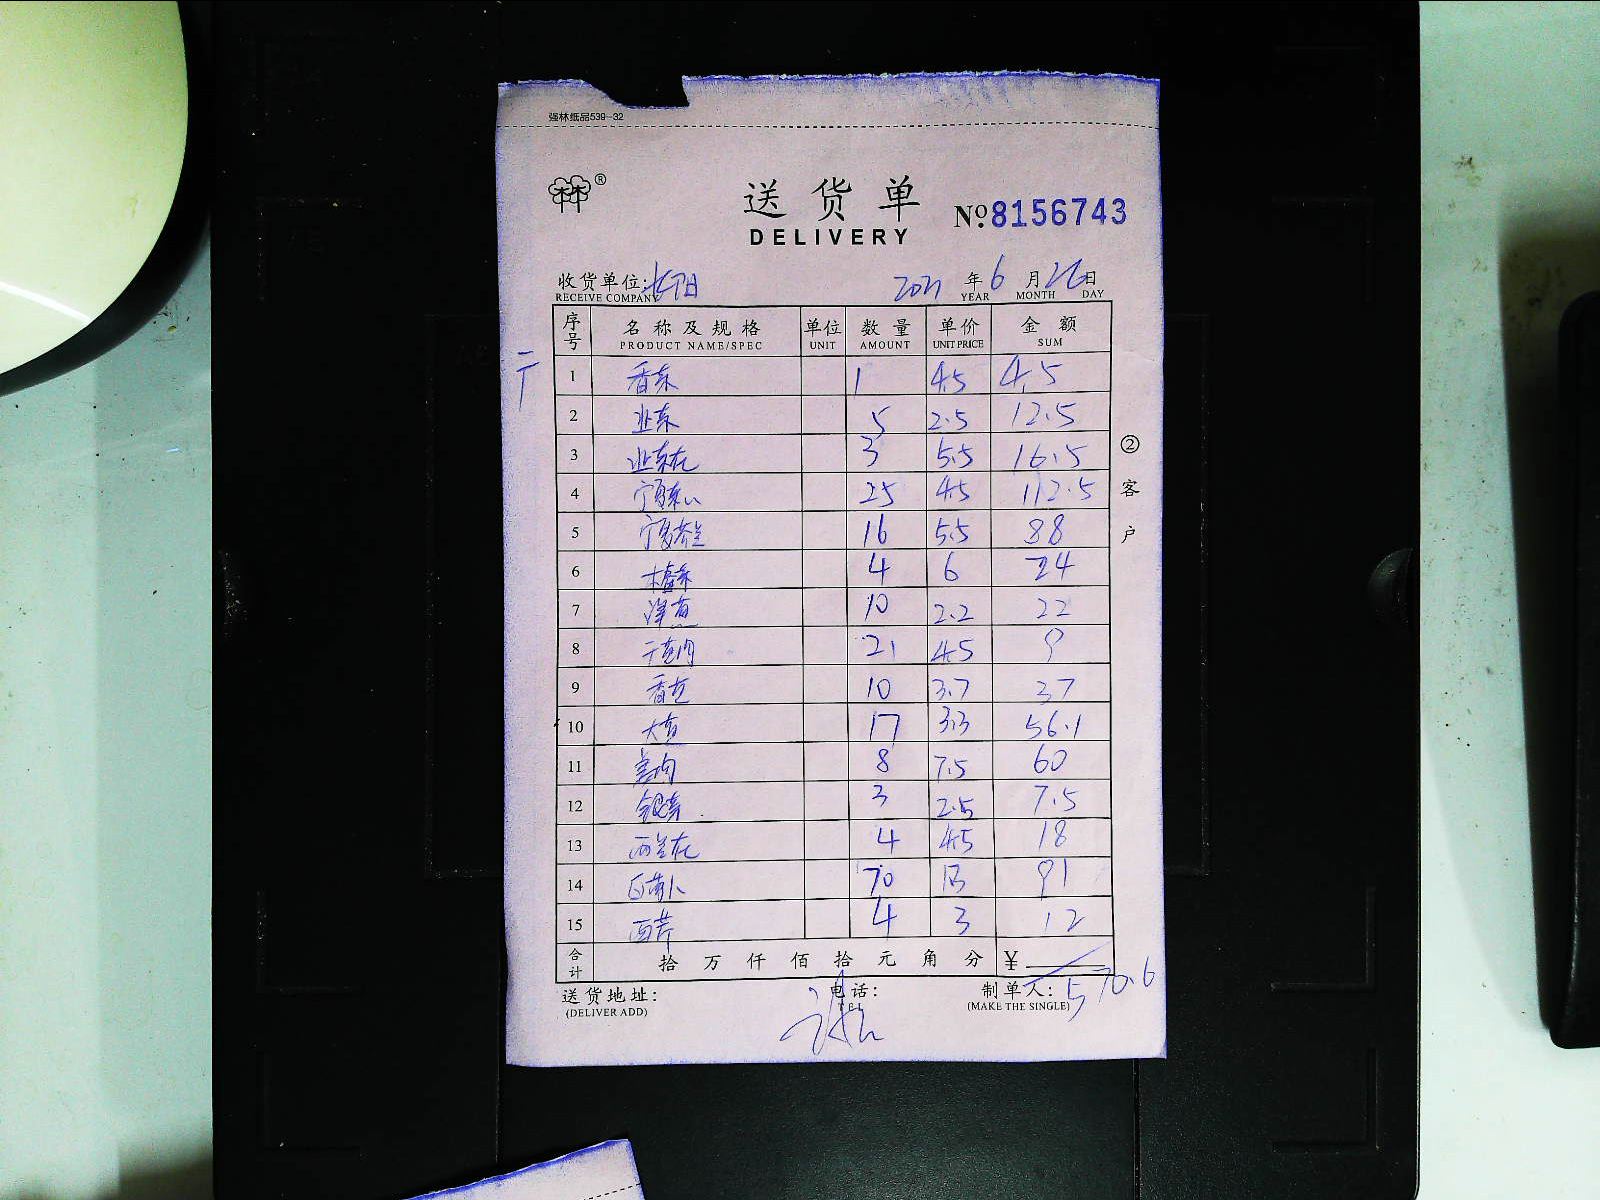 强林纸品539-32
®
送货单
DELIVERY
№8156743
收货单位:长阳 2021年6月26日
RECEIVE COMPANY YEAR MONTH DAY
序号 名称及规格 单位 数量 单价 金额
PRODUCT NAME/SPEC UNIT AMOUNT UNIT PRICE SUM
1 香菜 1 4.5 4.5
2 5 2.5 12.5
3 3 5.5 16.5
4 25 4.5 112.5
5 16 5.5 88
6 4 6 24
7 洋葱 10 2.2 22
8 21 4.5 9
9 香芹 10 3.7 37
10 大葱 17 3.3 56.1
11 8 7.5 60
12 3 2.5 7.5
13 西兰花 4 4.5 18
14 白萝卜 70 1.3 91
15 西芹 4 3 12
合计 拾万仟佰拾元角分 ¥ 570.6
送货地址: 电话: 制单人:
(DELIVER ADD) TEL (MAKE THE SINGLE)
②客户